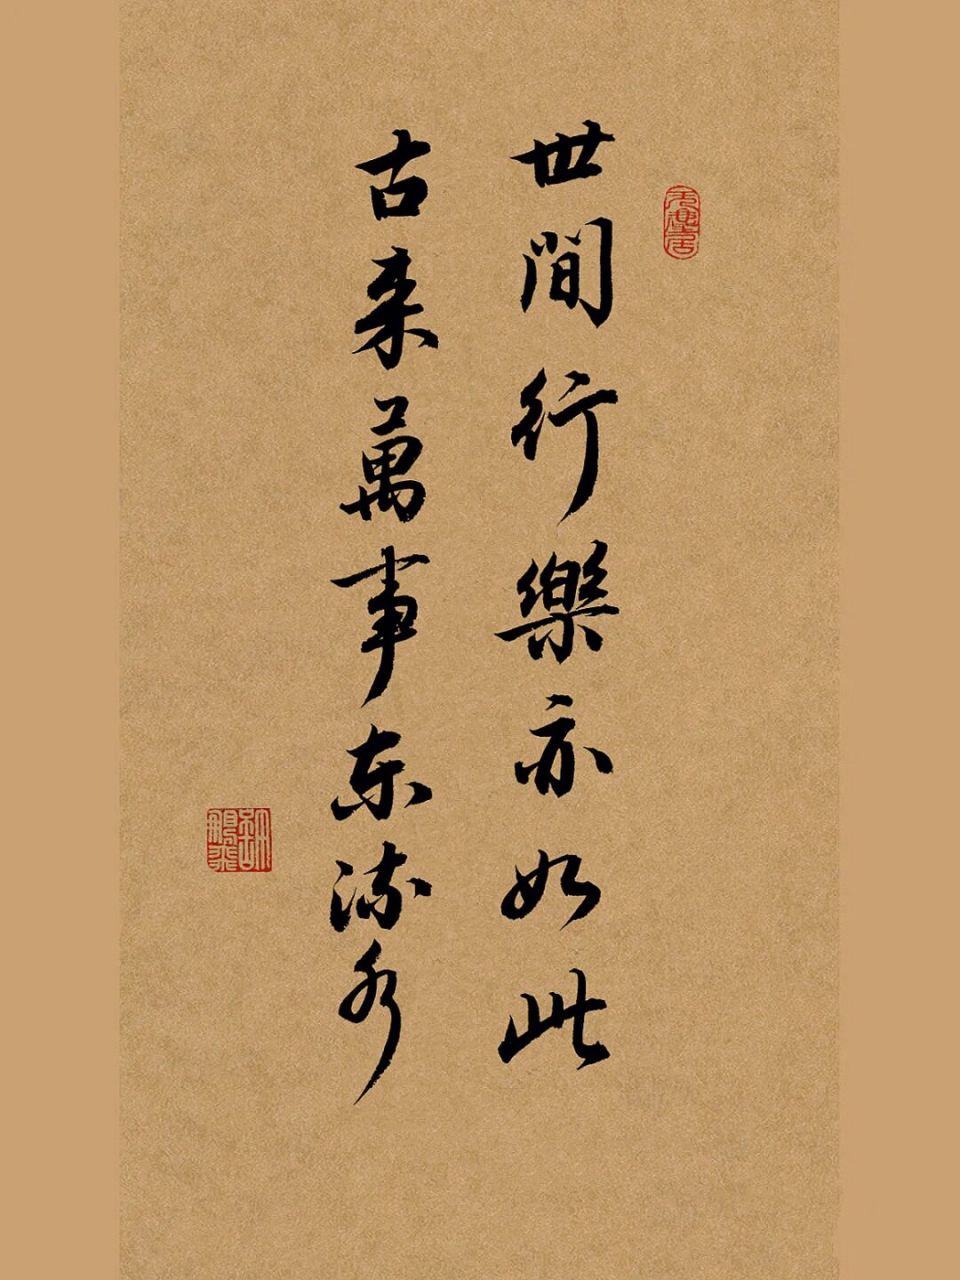 世間行樂亦如此
古来萬事东流水